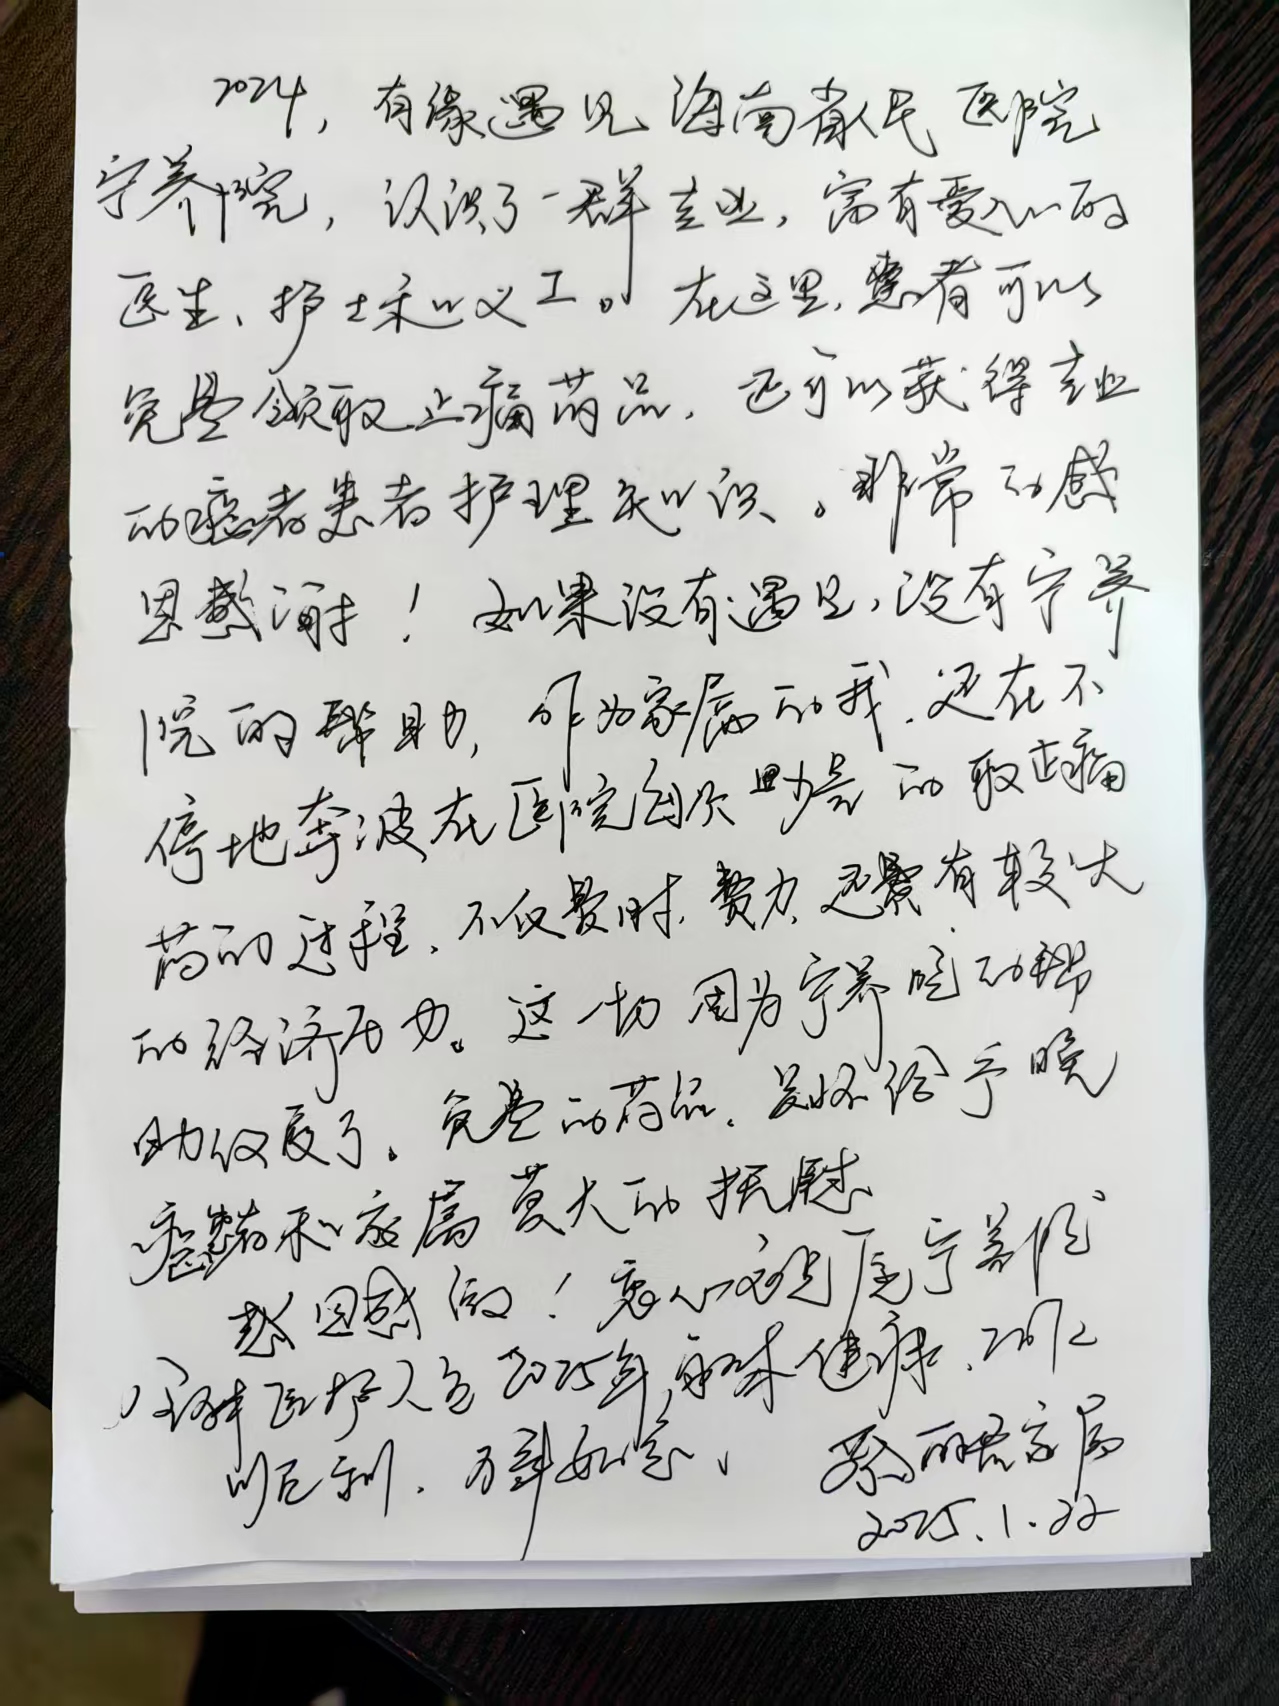 2024，有缘遇见海南省人民医院
宁养院，认识了一群专业，富有爱心的
医生、护士和义工。在这里，患者可以
免费领取止痛药品，还可以获得专业
的癌者患者护理知识。非常的感
恩感谢！如果没有遇见，没有宁养
院的帮助，作为家属的我，还在不
停地奔波在医院每次的取止痛
药的过程，不仅费时，费力，还要有较大
的经济压力。这一切因为宁养院的帮
助改变了。免费的药品，关怀给予晚
癌患者和家属莫大的抚慰
感恩感激！衷心祝愿宁养院
全体医护人员2025年，身体健康，工作
顺利，万事如意。
蔡丽家属
2025.1.22